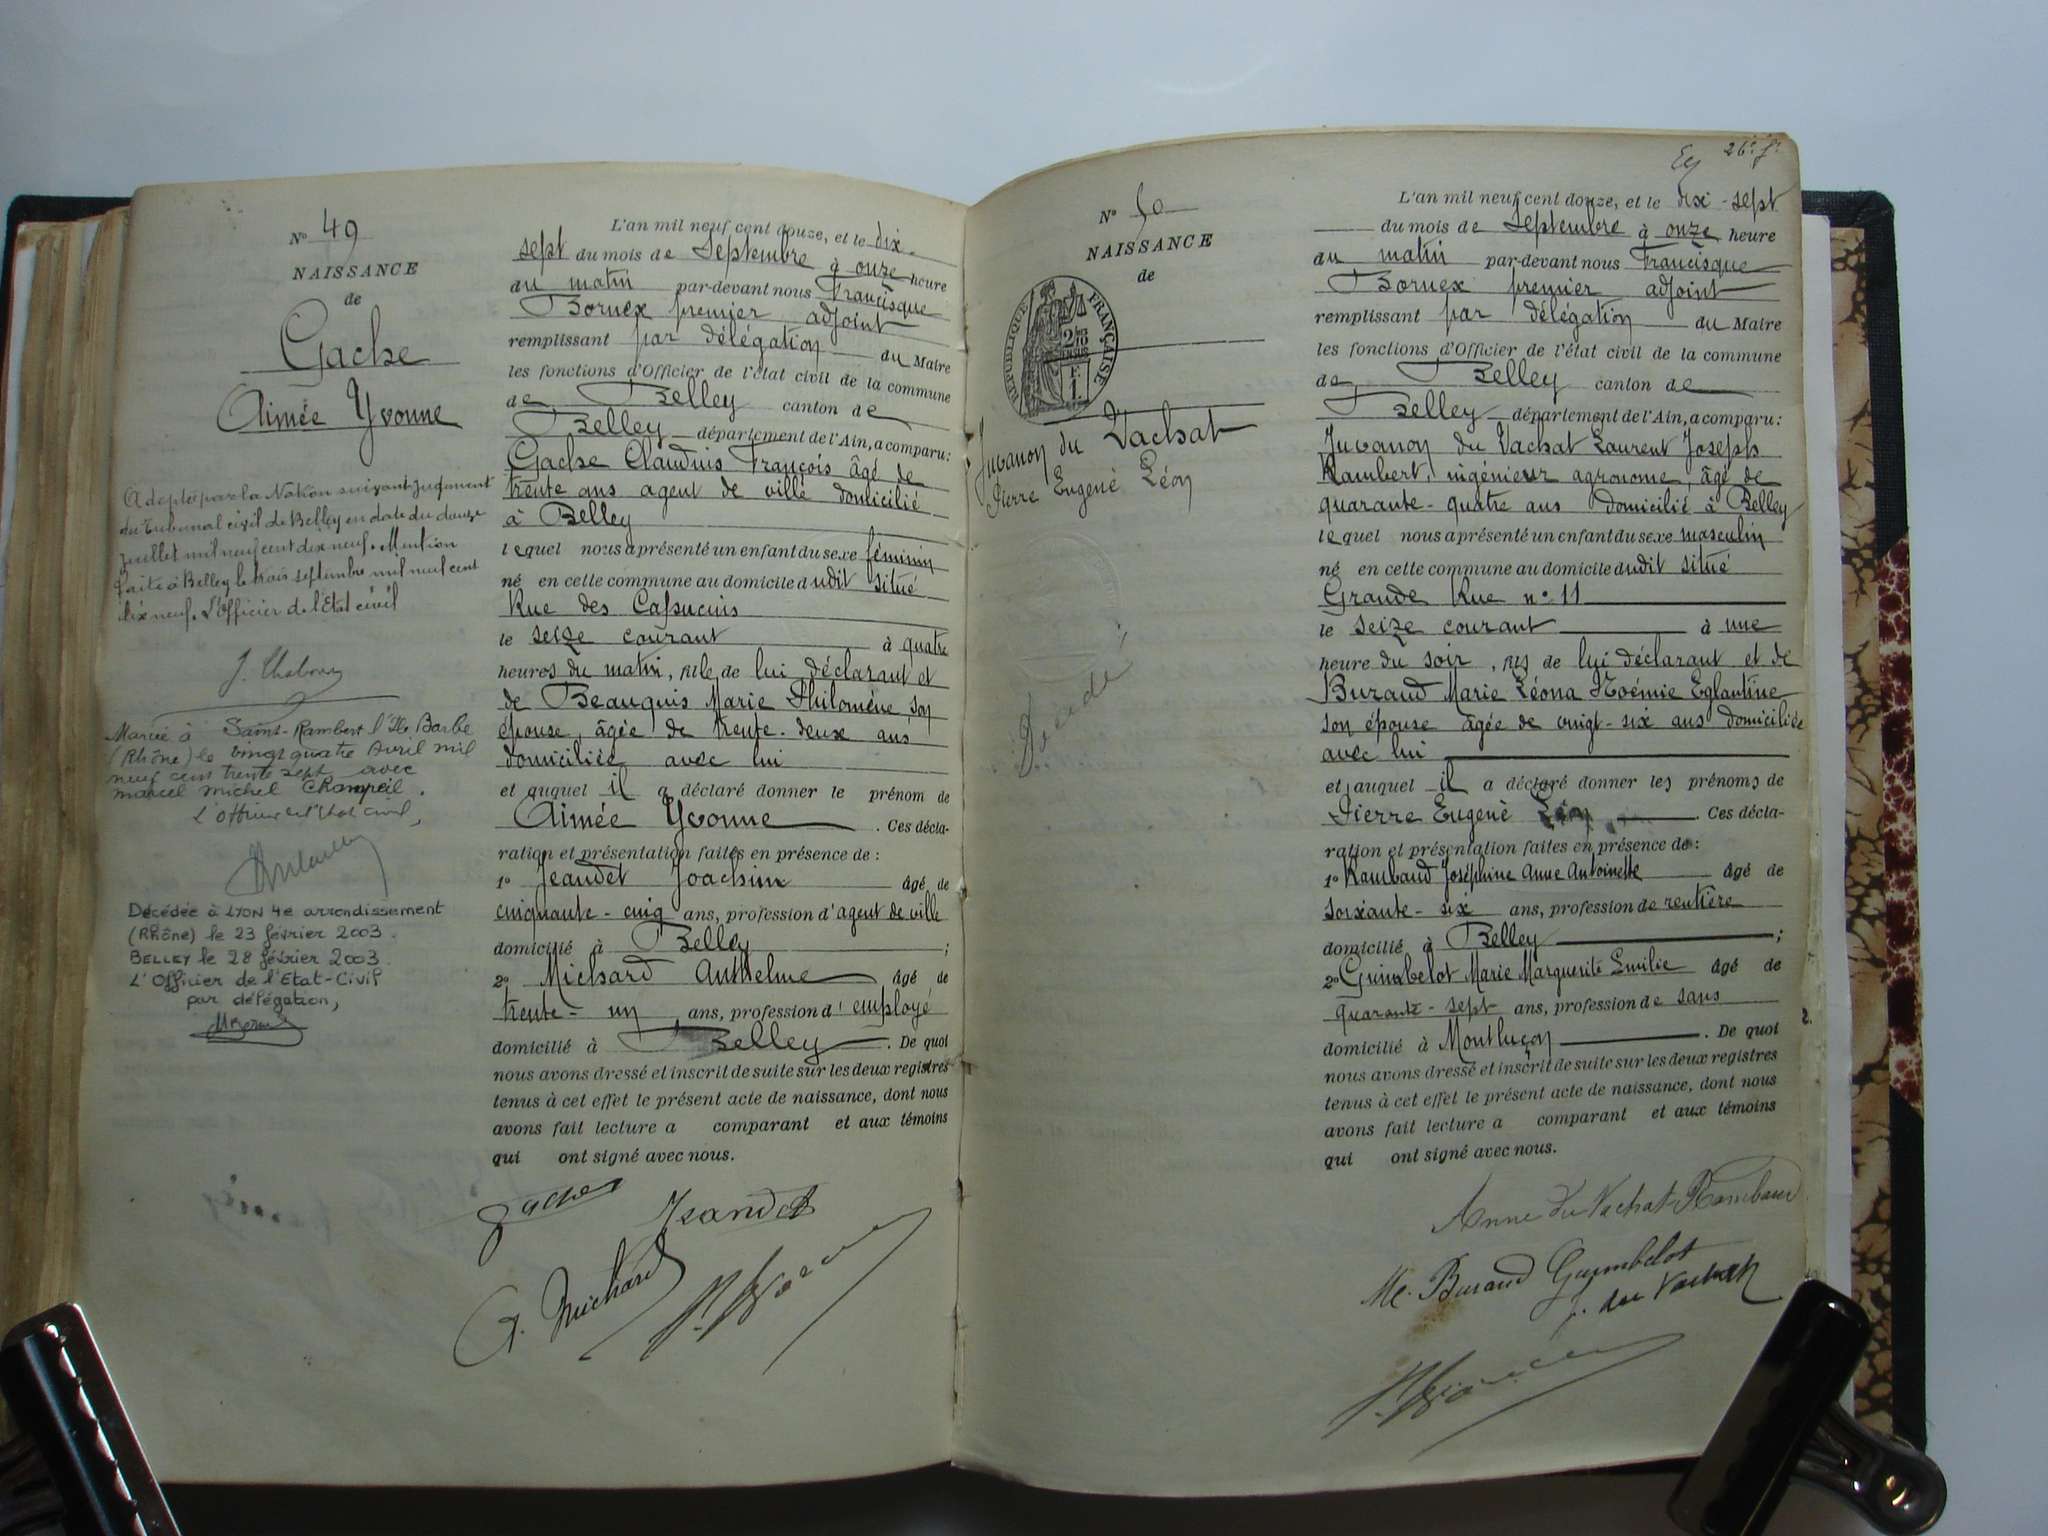 N° 49
NAISSANCE
de
Gache
Aimée Yvonne
Adoptée par la Nation suivant jugement
du Tribunal civil de Belley en date du douze
juillet mil neuf cent dix neuf. Mention
faite à Belley le trois septembre mil neuf cent
dix neuf. L'Officier de l'Etat civil
Mariée à Saint-Rambert l'Ile Barbe
(Rhône) le vingt quatre Avril mil
neuf cent trente sept avec
marcel michel Champeil.
L'officier de l'état civil,
Décédée à LYON 4e arrondissement
(Rhône) le 23 février 2003.
BELLEY le 28 février 2003.
L'Officier de l'Etat-Civil
par délégation,
L'an mil neuf cent douze, et le dix-
sept du mois de Septembre à onze heure
du matin par-devant nous Francisque
Bornex premier adjoint
remplissant par délégation du Maire
les fonctions d'Officier de l'état civil de la commune
de Belley canton de
Belley département de l'Ain, a comparu:
Gache Claudius François âgé de
trente ans agent de ville domicilié
à Belley
lequel nous a présenté un enfant du sexe féminin
né en cette commune au domicile dudit situé
Rue des Capucins
le seize courant à quatre
heures du matin, fille de lui déclarant et
de Beauquis Marie Philomène, son
épouse, âgée de trente-deux ans
domiciliée avec lui
et auquel il a déclaré donner le prénom de
Aimée Yvonne. Ces décla-
ration et présentation faites en présence de :
1° Jeandet Joachim âgé de
cinquante-cinq ans, profession d'agent de ville
domicilié à Belley ;
2° Michard Anthelme âgé de
trente-un ans, profession d'employé
domicilié à Belley. De quoi
nous avons dressé et inscrit de suite sur les deux registres
tenus à cet effet le présent acte de naissance, dont nous
avons fait lecture a comparant et aux témoins
qui ont signé avec nous.
Gache Jeandet
A. Michard
26e f.
N° 50
NAISSANCE
de
RÉPUBLIQUE FRANÇAISE
Juvanon du Vachat
Pierre Eugené Léon
L'an mil neuf cent douze, et le dix-sept
du mois de Septembre à onze heure
du matin par-devant nous Francisque
Bornex premier adjoint
remplissant par délégation du Maire
les fonctions d'Officier de l'état civil de la commune
de Belley canton de
Belley département de l'Ain, a comparu:
Juvanon du Vachat Laurent Joseph
Rambert, ingénieur agronome, âgé de
quarante-quatre ans domicilié à Belley
lequel nous a présenté un enfant du sexe masculin
né en cette commune au domicile dudit situé
Grande Rue n° 11
le seize courant à une
heure du soir, fils de lui déclarant et de
Buraud Marie Léona Noémie Eglantine
son épouse âgée de vingt-six ans domiciliée
avec lui
et auquel il a déclaré donner les prénoms de
Pierre Eugené Léon. Ces décla-
ration et présentation faites en présence de :
1° Rambaud Joséphine Anne Antoinette âgé de
soixante-six ans, profession de rentière
domicilié à Belley ;
2° Guimbelot Marie Marguerite Emilie âgé de
quarante-sept ans, profession de sans
domicilié à Montluçon. De quoi
nous avons dressé et inscrit de suite sur les deux registres
tenus à cet effet le présent acte de naissance, dont nous
avons fait lecture a comparant et aux témoins
qui ont signé avec nous.
Anne du Vachat Rambaud
Me. Buraud Guimbelot
J. du Vachat